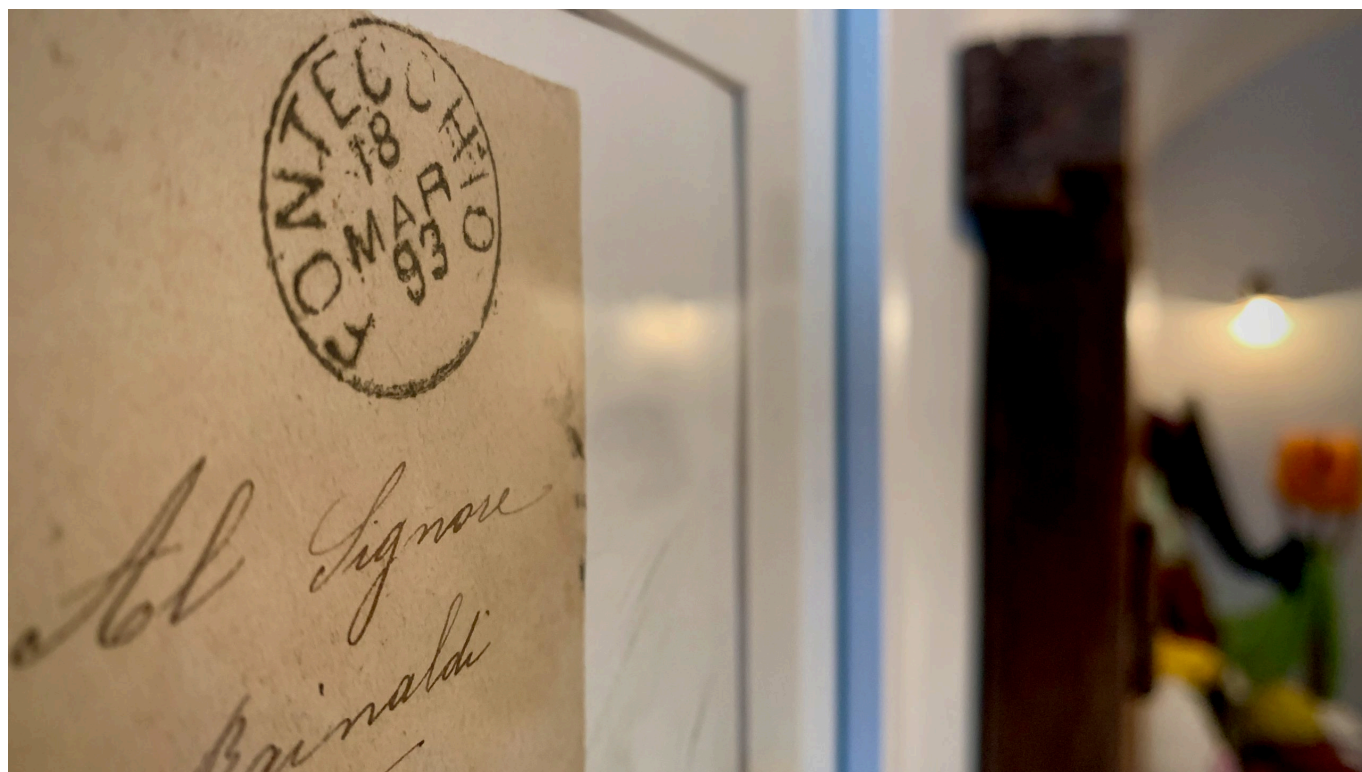 FONTECCHIO
18
MAR
93
Al Signore
Rainaldi